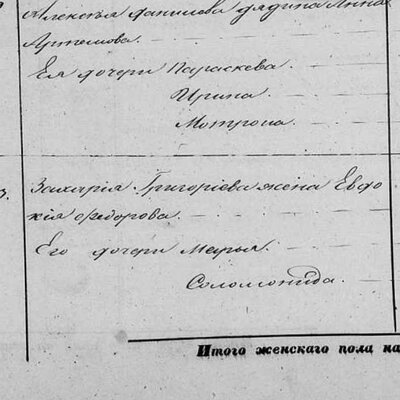 Алексѣя Данилова дядина Анна
Артемова.
Ея дочери Параскева
Ирина.
Мотрона.
3. Захарія Григоріева жена Евдо
кія Федорова.
Его дочери Марья.
Соломонида.
Итого женскаго пола на